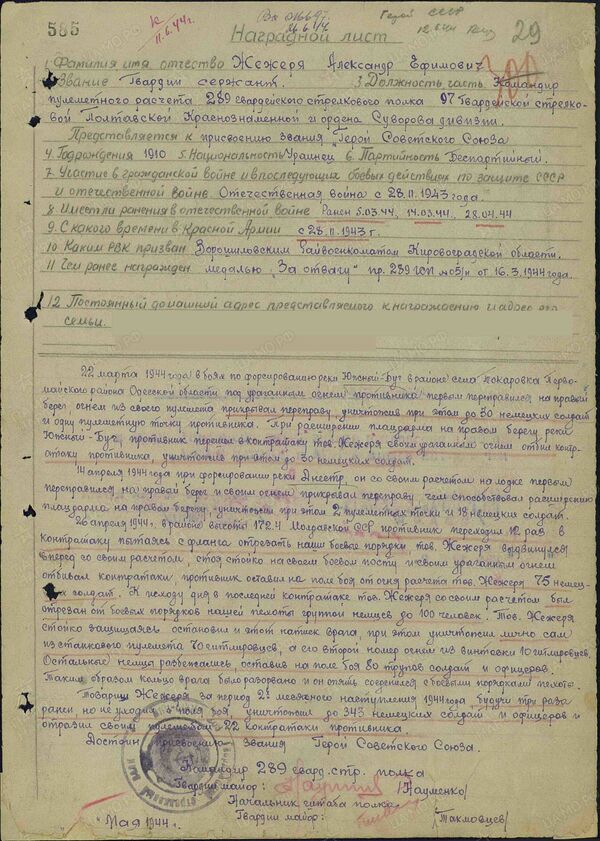 585
Наградной лист
29
Герой СССР
1 Фамилия имя отчество Жежеря Александр Ефимович
2 Звание Гвардии сержант. 3 Должность часть Командир
пулеметного расчета 289 гвардейского стрелкового полка 97 Гвардейской стрелко-
вой Полтавской Краснознаменной и ордена Суворова дивизии.
Представляется к присвоению звания "Герой Советского Союза"
4 Год рождения 1910 5. Национальность Украинец 6. Партийность Беспартийный
7. Участие в гражданской войне и в последующих боевых действиях по защите СССР
и отечественной войне. Отечественная война с 28.11.1943 года.
8 Имеет ли ранения в отечественной войне Ранен 5.03.44, 14.03.44, 28.04.44
9. С какого времени в Красной Армии с 28.11.1943 г.
10 Каким РВК призван Ворошиловским Райвоенкоматом Кировоградской области.
11 Чем ранее награжден медалью "За отвагу" пр. 289 ГСП №05/н от 16.3.1944 года.
12 Постоянный домашний адрес представляемого к награждению и адрес его
семьи.
22 марта 1944 года в боях по форсированию реки Южный-Буг в районе села Токаровка Перво-
майского района Одесской области под ураганным огнем противника первом переправился на правый
берег огнем из своего пулемета прикрывал переправу, уничтожив при этом до 30 немецких солдат
и одну пулеметную точку противника. При расширении плацдарма на правом берегу реки
Южный-Буг, противник перешел в контратаку тов. Жежеря своим ураганным огнем отбил контр-
атаку противника, уничтожив при этом до 30 немецких солдат.
14 апреля 1944 года при форсировании реки Днестр, он со своим расчетом на лодке первом
переправился на правый берег и своим огнем прикрывал переправу, чем способствовал расширению
плацдарма на правом берегу, уничтожив при этом 2 пулеметных точки и 18 немецких солдат.
26 апреля 1944 г. в районе высоты 172.4 Молдавской ССР противник переходил 12 раз в
контратаку пытаясь с фланга отрезать наши боевые порядки тов. Жежеря выдвинулся
вперед со своим расчетом, стоя стойко на своем боевом посту и своим ураганным огнем
отбивал контратаки, противник оставил на поле боя от огня расчета тов. Жежеря 75 немец-
ких солдат. К исходу дня в последней контратаке тов. Жежеря со своим расчетом был
отрезан от боевых порядков нашей пехоты группой немцев до 100 человек. Тов. Жежеря
стойко защищаясь остановил и этот натиск врага, при этом уничтожил лично сам
из станкового пулемета 70 гитлеровцев, а его второй номер огнем из винтовки 10 гитлеровцев.
Остальные немцы разбежались, оставив на поле боя 80 трупов солдат и офицеров.
Таким образом кольцо врага было разорвано и он опять соединился с боевыми порядками пехоты.
Товарищ Жежеря за период 2х месячного наступления 1944 года, будучи три раза
ранен, но не уходя с поля боя, уничтожил до 343 немецких солдат и офицеров и
отразил своим пулеметом 22 контратаки противника.
Достоин присвоения звания Героя Советского Союза.
Командир 289 гвард. стр. полка
Гвардии майор: /Науменко/
Начальник штаба полка
Гвардии майор: /Такловцев/
" Мая 1944 г.